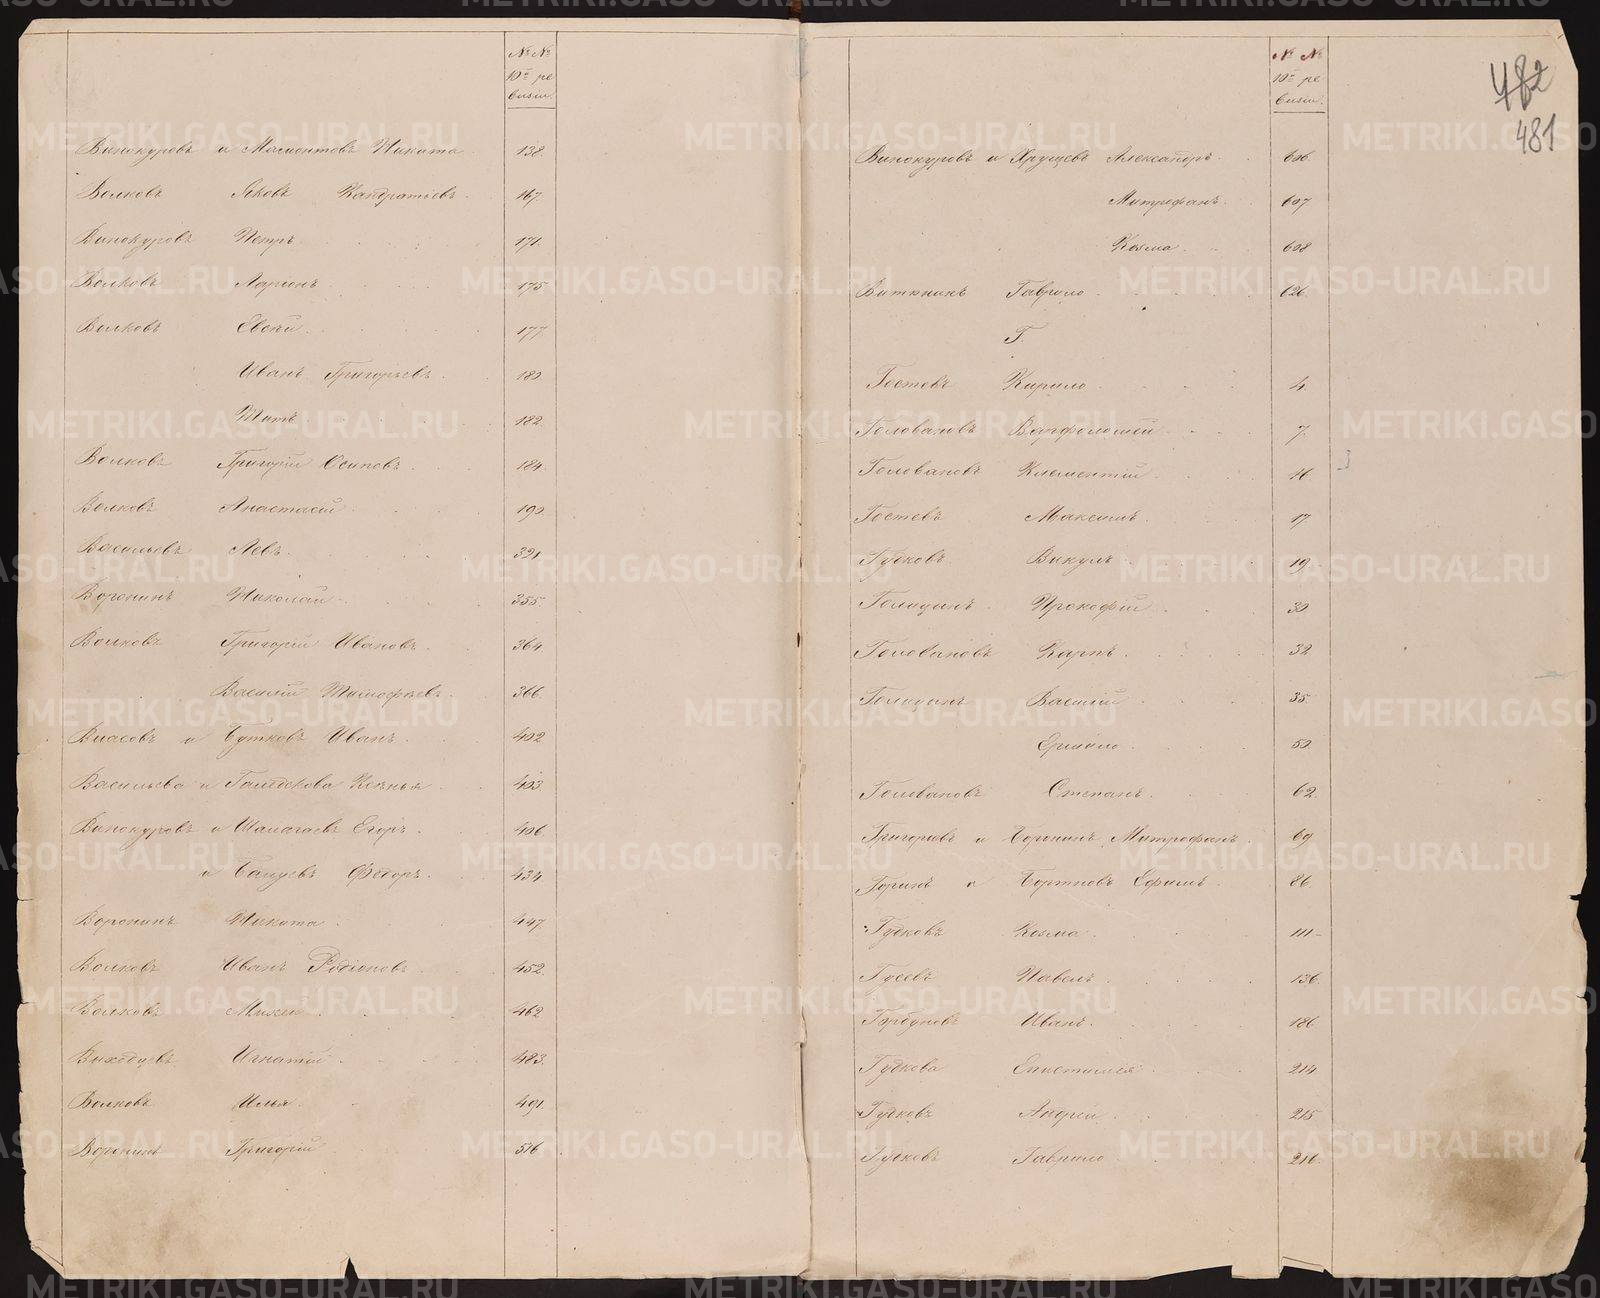 № №
10й ре
визiи.
Винокуровъ и Мамонтовъ Никита 138.
Волковъ Яковъ Кандратьевъ 167.
Винокуровъ Петръ 171.
Волковъ Ларiонъ 175
Волковъ Евсѣй 177
Иванъ Григорьевъ 180
182.
Волковъ Григорiй Осиповъ 184.
Волковъ Анастасiй 190.
Васильевъ Левъ 321.
Воронинъ Николай 355.
Волковъ Григорiй Ивановъ 364
Василiй Тимофѣевъ 366.
Власовъ и Бутковъ Иванъ 402
Васильева и Ксѣнья 403.
Винокуровъ и Шалагаевъ Егоръ 406.
и Федоръ 434
Воронинъ Никита 447.
Волковъ Иванъ Родiоновъ 452.
Волковъ Михей 462
Выходцевъ Игнатiй 483.
Волковъ Илья 491.
Воронинъ Григорiй 516
482
481
№ №
10й ре
визiи.
Винокуровъ и Хрущевъ Александръ 606.
Митрофанъ 607
Козма 608
Витюнинъ Гаврило 626.
Г.
Гостевъ Кирило 4.
Головановъ Варфоломей 7.
Головановъ Климентiй 16.
Гостевъ Максимъ 17
Гудковъ Викулъ 19
Голицинъ Прокофiй 30
Головановъ Карпъ 32
Голицинъ Василiй 35.
Ермило 50.
Головановъ Степанъ 62
Григорьевъ и Воронинъ Митрофанъ 69
Горинъ и Бортновъ Ефимъ 86.
Гудковъ Козма 111
Гусевъ Павелъ 136.
Горбуновъ Иванъ 186
Гудкова Епистимея 214
Гудковъ Андрей 215
Гудковъ Гаврило 216.
METRIKI.GASO-URAL.RU